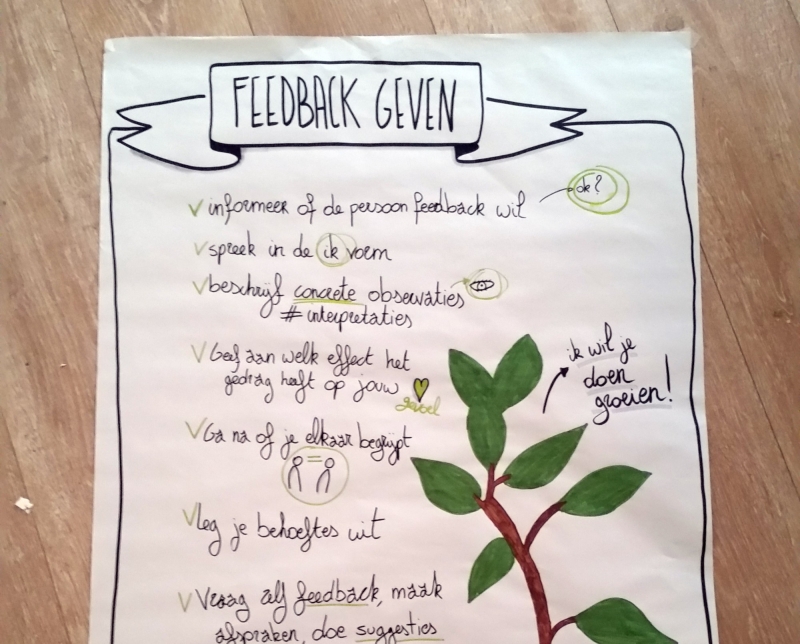 FEEDBACK GEVEN
informeer of de persoon feedback wil
ok?
spreek in de ik vorm
beschrijf concrete observaties
# interpretaties
Geef aan welk effect het
gedrag heeft op jouw
gevoel
ik wil je
doen
groeien!
Ga na of je elkaar begrijpt
=
leg je behoeftes uit
Vraag zelf feedback, maak
afspraken, doe suggesties